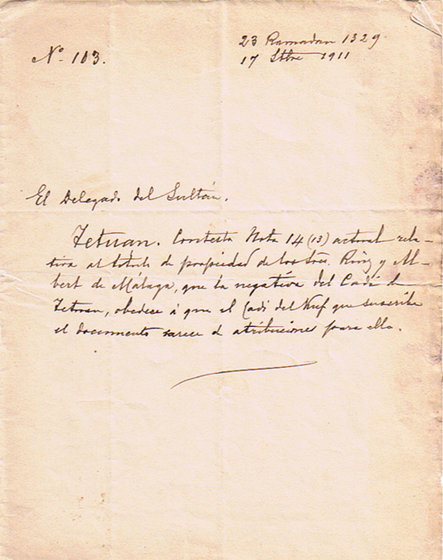 23 Ramadan 1329.
Nº 103.
17 Stbre 1911
El Delegado del Sultán.
Tetuan. Contesta Nota 14 (13) actual rela-
tiva al título de propiedad de los Sres. Ruiz y Al-
bert de Málaga, que la negativa del Cadí de
Tetuan, obedece á que el Cadi del Rif que suscribe
el documento carece de atribuciones para ello.